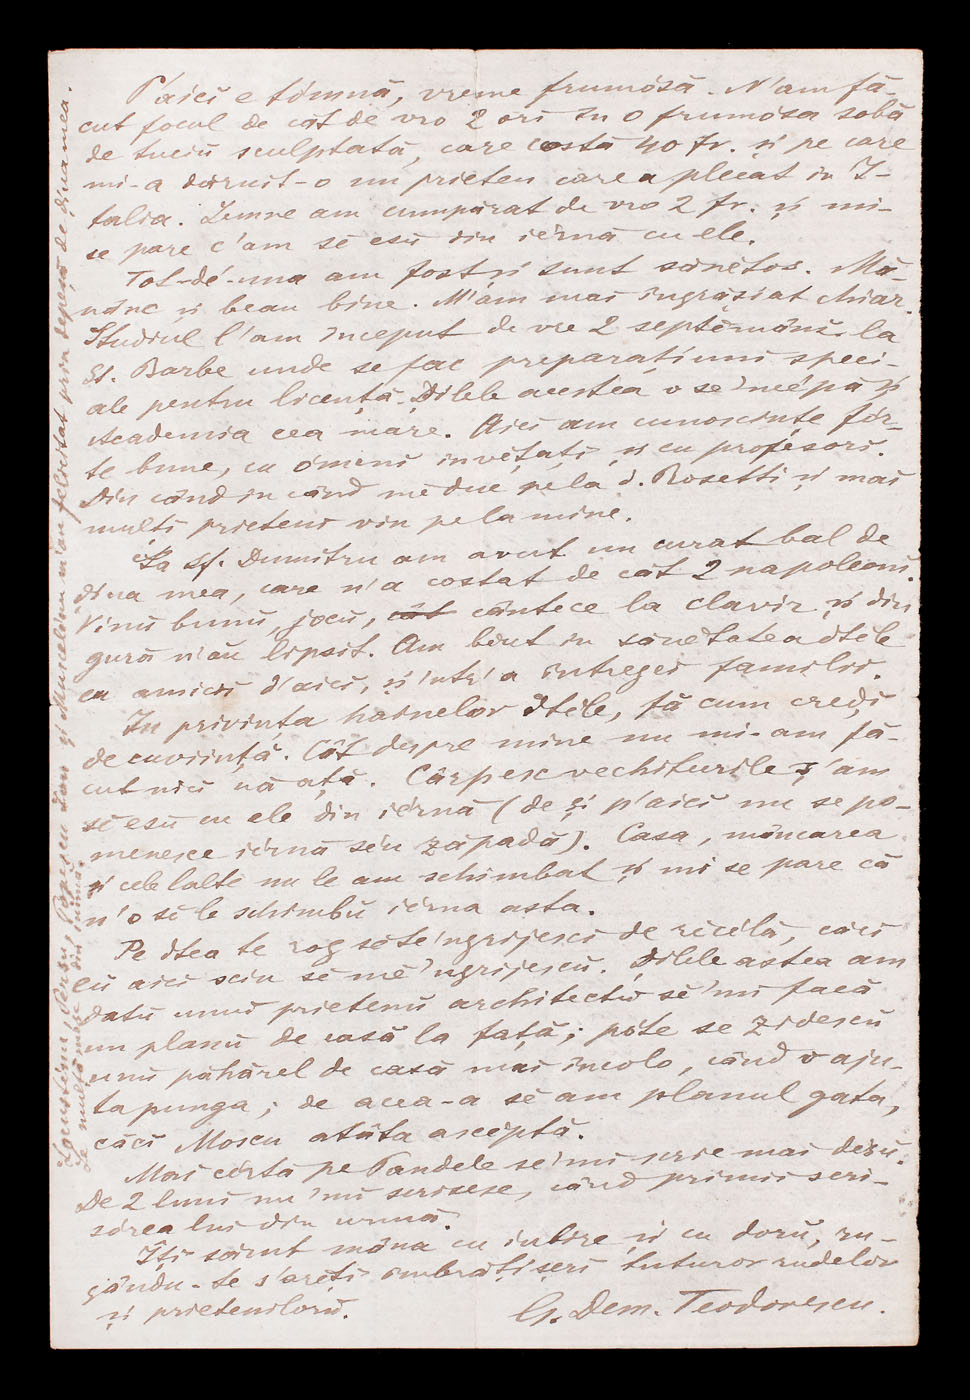 P'aici e tómnă, vreme frumósă. N'am fă-
cut focul de cât de vro 2 ori în o frumósa sobă
de tuciŭ sculptată, care costă 40 fr. și pe care
mi-a dăruit-o un prieten care a plecat în I-
talia. Lemne am cumpărat de vro 2 fr. și mi-
se pare c'am sĕ esŭ din iérnă cu ele.
Tot-dé-una am fost și sunt sănĕtos. Mă-
nânc și beau bine. M'am mai îngrășiat chiar.
Studiul l'am început de vre 2 septĕmânĭ la
St. Barbe unde se fac preparațiuni speci-
ale pentru licență. Ḑilele acestea o se 'ncépă și
Academia cea mare. Aici am cunoscințe fór-
te bune, cu ómeni învĕțați și cu profesori.
Din când în când mĕ duc pe la d. Rosetti și mai
mulți prieteni vin pe la mine.
La Sf. Dumitru am avut un curat bal de
ḑiua mea, care n'a costat de cât 2 napoleoni.
Vinŭ bunŭ, jocŭ, cât cântece la clavir și din
gură n'aŭ lipsit. Am bĕut în sănĕtatea dtéle
cu amicii d'aici, și 'ntr'a întregei familii.
În privința hainelor dtéle, fă cum creḑi
de cuviință. Cât despre mine nu mi-am fă-
cut nici nă ață. Cârpesc vechiturile ș'am
sĕ esŭ cu ele din iérnă (de și p'aici nu se po-
menesce iérnă séŭ zăpadă). Casa, mâncarea
și cele lalte nu le am schimbat și mi se pare că
n'o sĕ le schimbŭ iérna asta.
Pe dtea te rog sĕ te 'ngrijesci de rĕcélă, căci
eŭ aici sciu sĕ mĕ 'ngrijescŭ. Ḑilele astea am
datŭ unui prietenŭ architectŭ sĕ 'mi facă
un planŭ de casă la față; póte se zidescŭ
unŭ păhărel de casă mai încolo, când o aju-
ta punga; de acea-a sĕ am planul gata,
căci Moscu atâta ascéptă.
Mai cértă pe Pandele se 'mi scrie mai desŭ.
De 2 luni nu 'mi scrisese, când primii scri-
sórea lui din urmă.
Îți sărut mâna cu iubire și cu dorŭ, ru-
gându-te s'arĕți îmbrățișerĭ tuturor rudelor
și prietenilorŭ.
G. Dem. Teodorescu.
Ion și Muscelénu m'au felicitat prin depeșă de ḑiua mea.
Le mulță mesc din inimă.